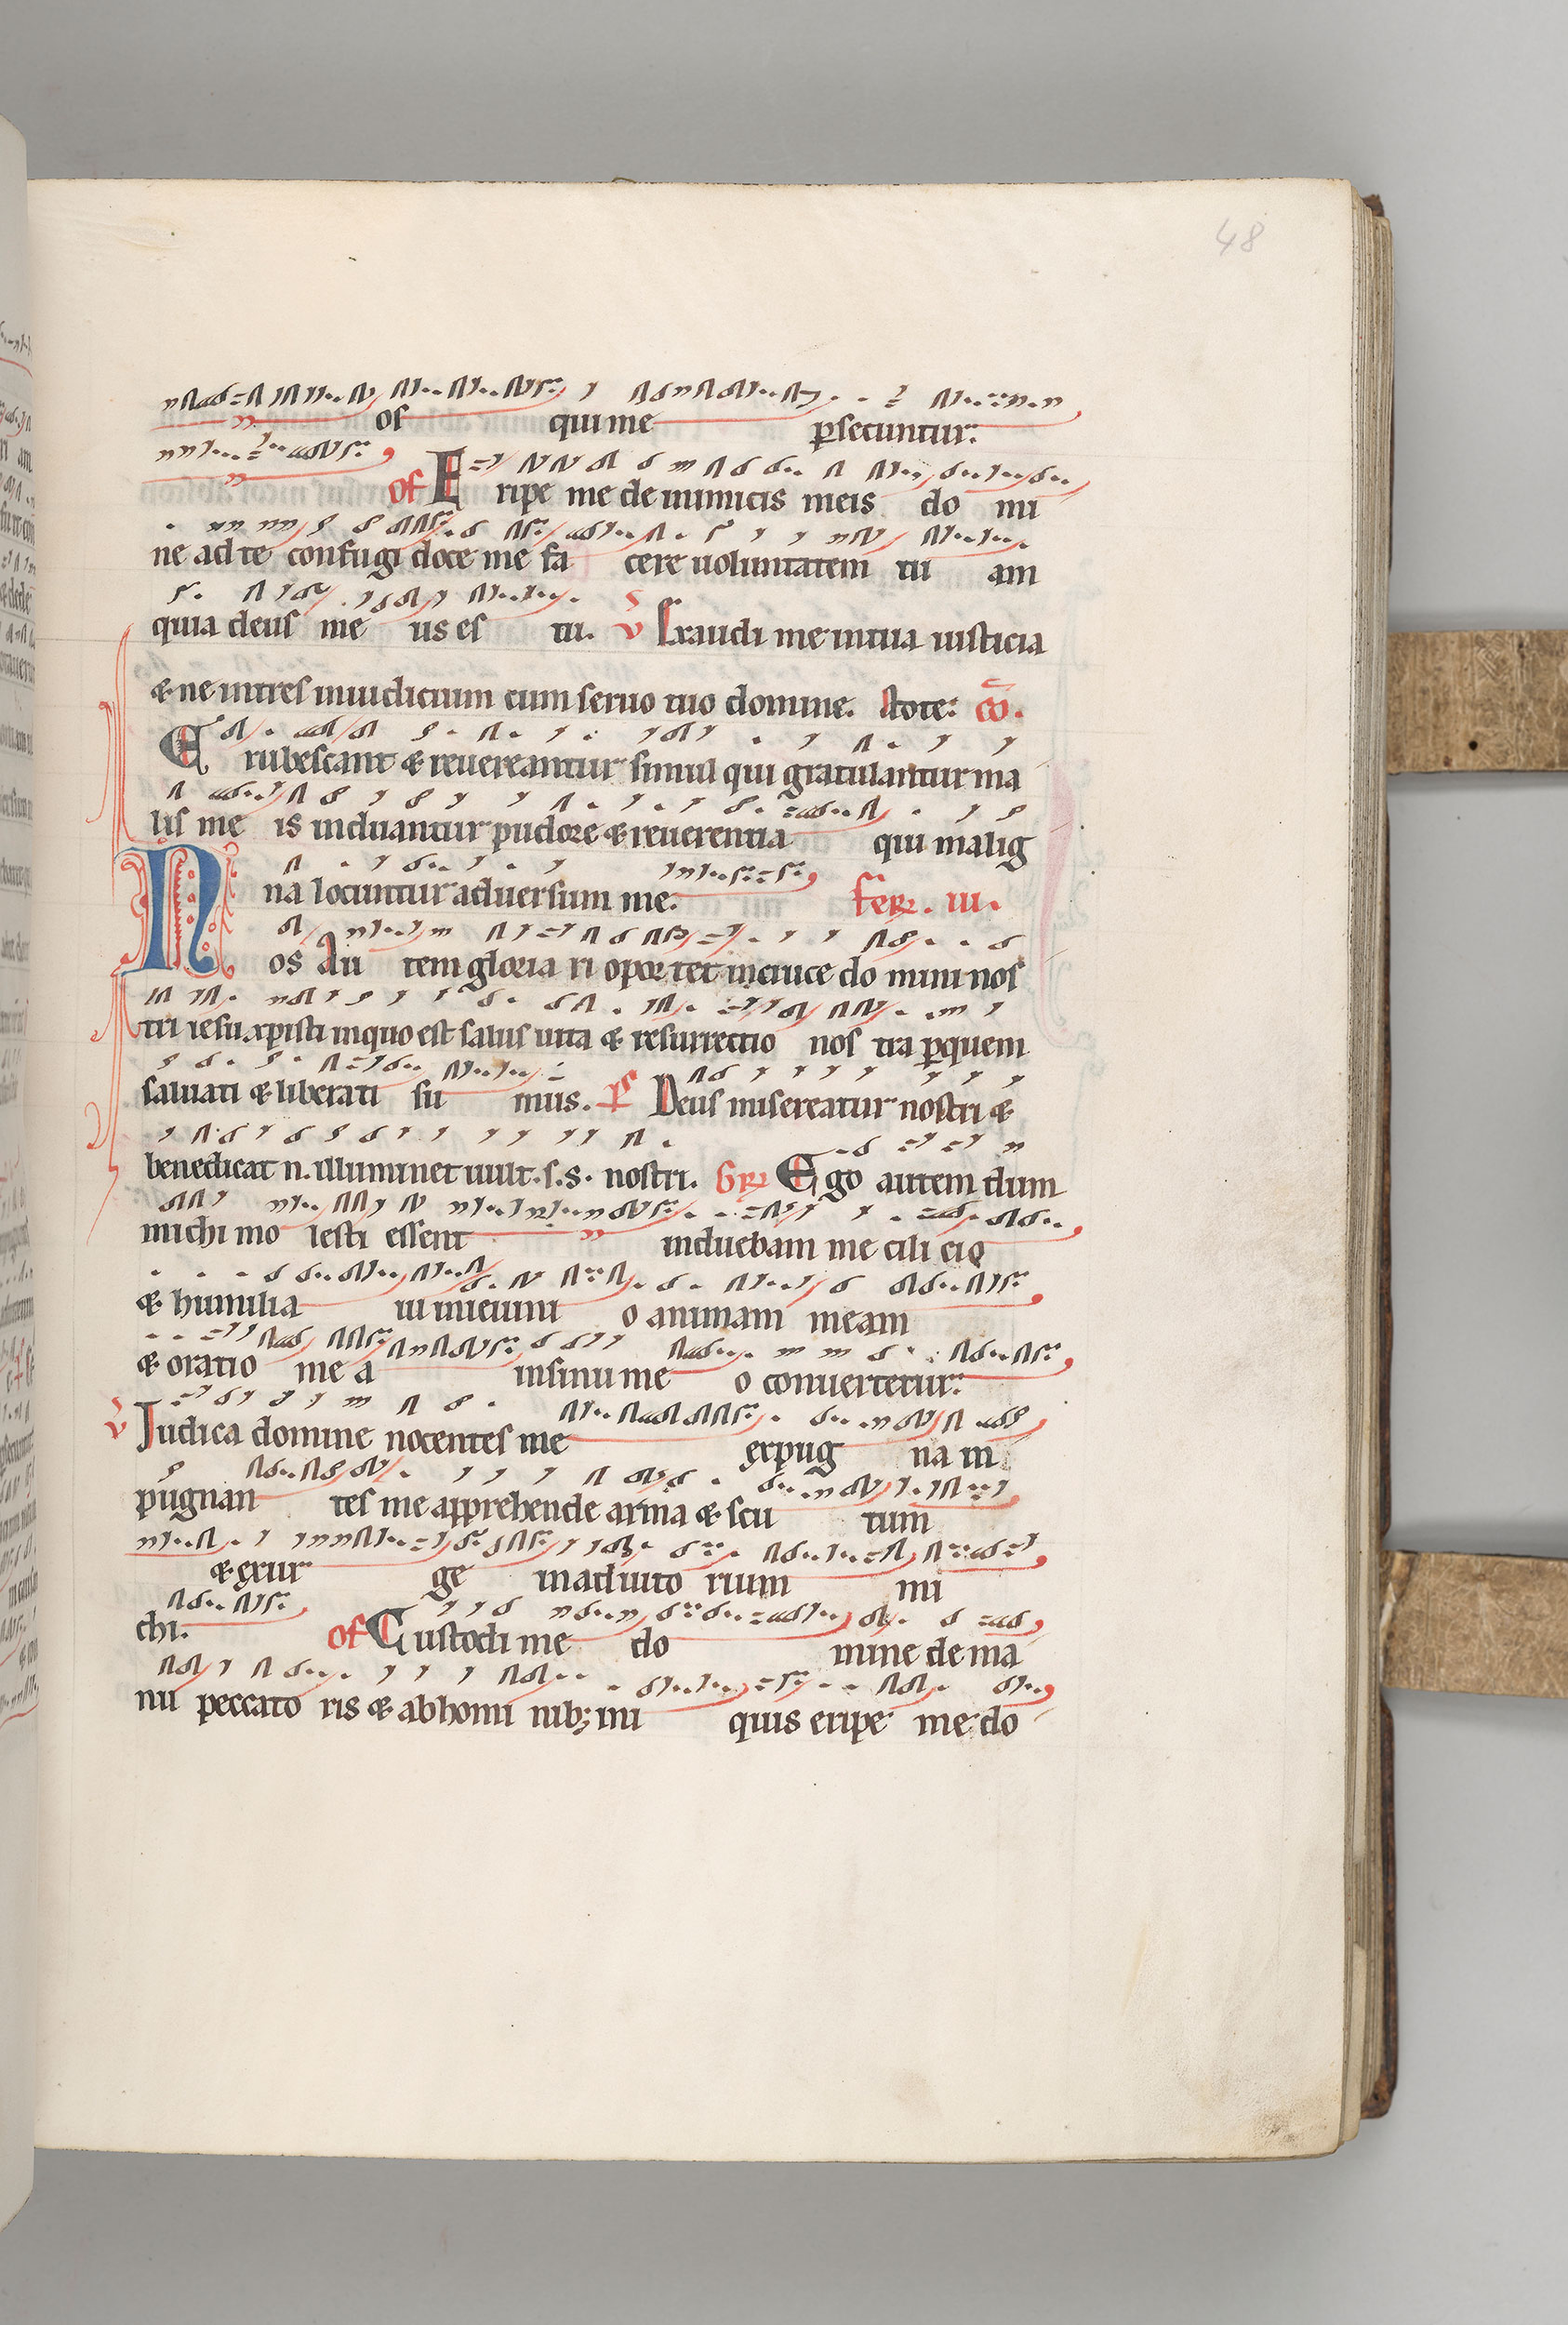 48
os qui me psecuntur.
of Eripe me de inimicis meis do mi
ne ad te confugi doce me fa cere uoluntatem tu am
quia deus me us es tu. v Exaudi me in tua iusticia
& ne intres in iudicium cum seruo tuo domine. Ad te: co.
Erubescant & reuereantur simul qui gratulantur ma
lis me is induantur pudore & reuerentia qui malig
na locuntur aduersum me. fer. III.
Nos Au tem gloria ri oportet in cruce do mini nos
tri iesu xpisti in quo est salus uita & resurrectio nos tra pquem
saluati & liberati su mus. ps Deus misereatur nostri &
benedicat n. illuminet uult. s. s. nostri. Gr Ego autem dum
michi mo lesti essent induebam me cili cio
& humilia iu in ieiuni o animam meam
& oratio me a in sinu me o conuertetur.
v Iudica domine nocentes me expug na in
pugnan tes me apprehende arma & scu tum
& exur ge in adiuto rium mi
chi. of Custodi me do mine de ma
nu peccato ris & ab homi nib; ini quis eripe me do